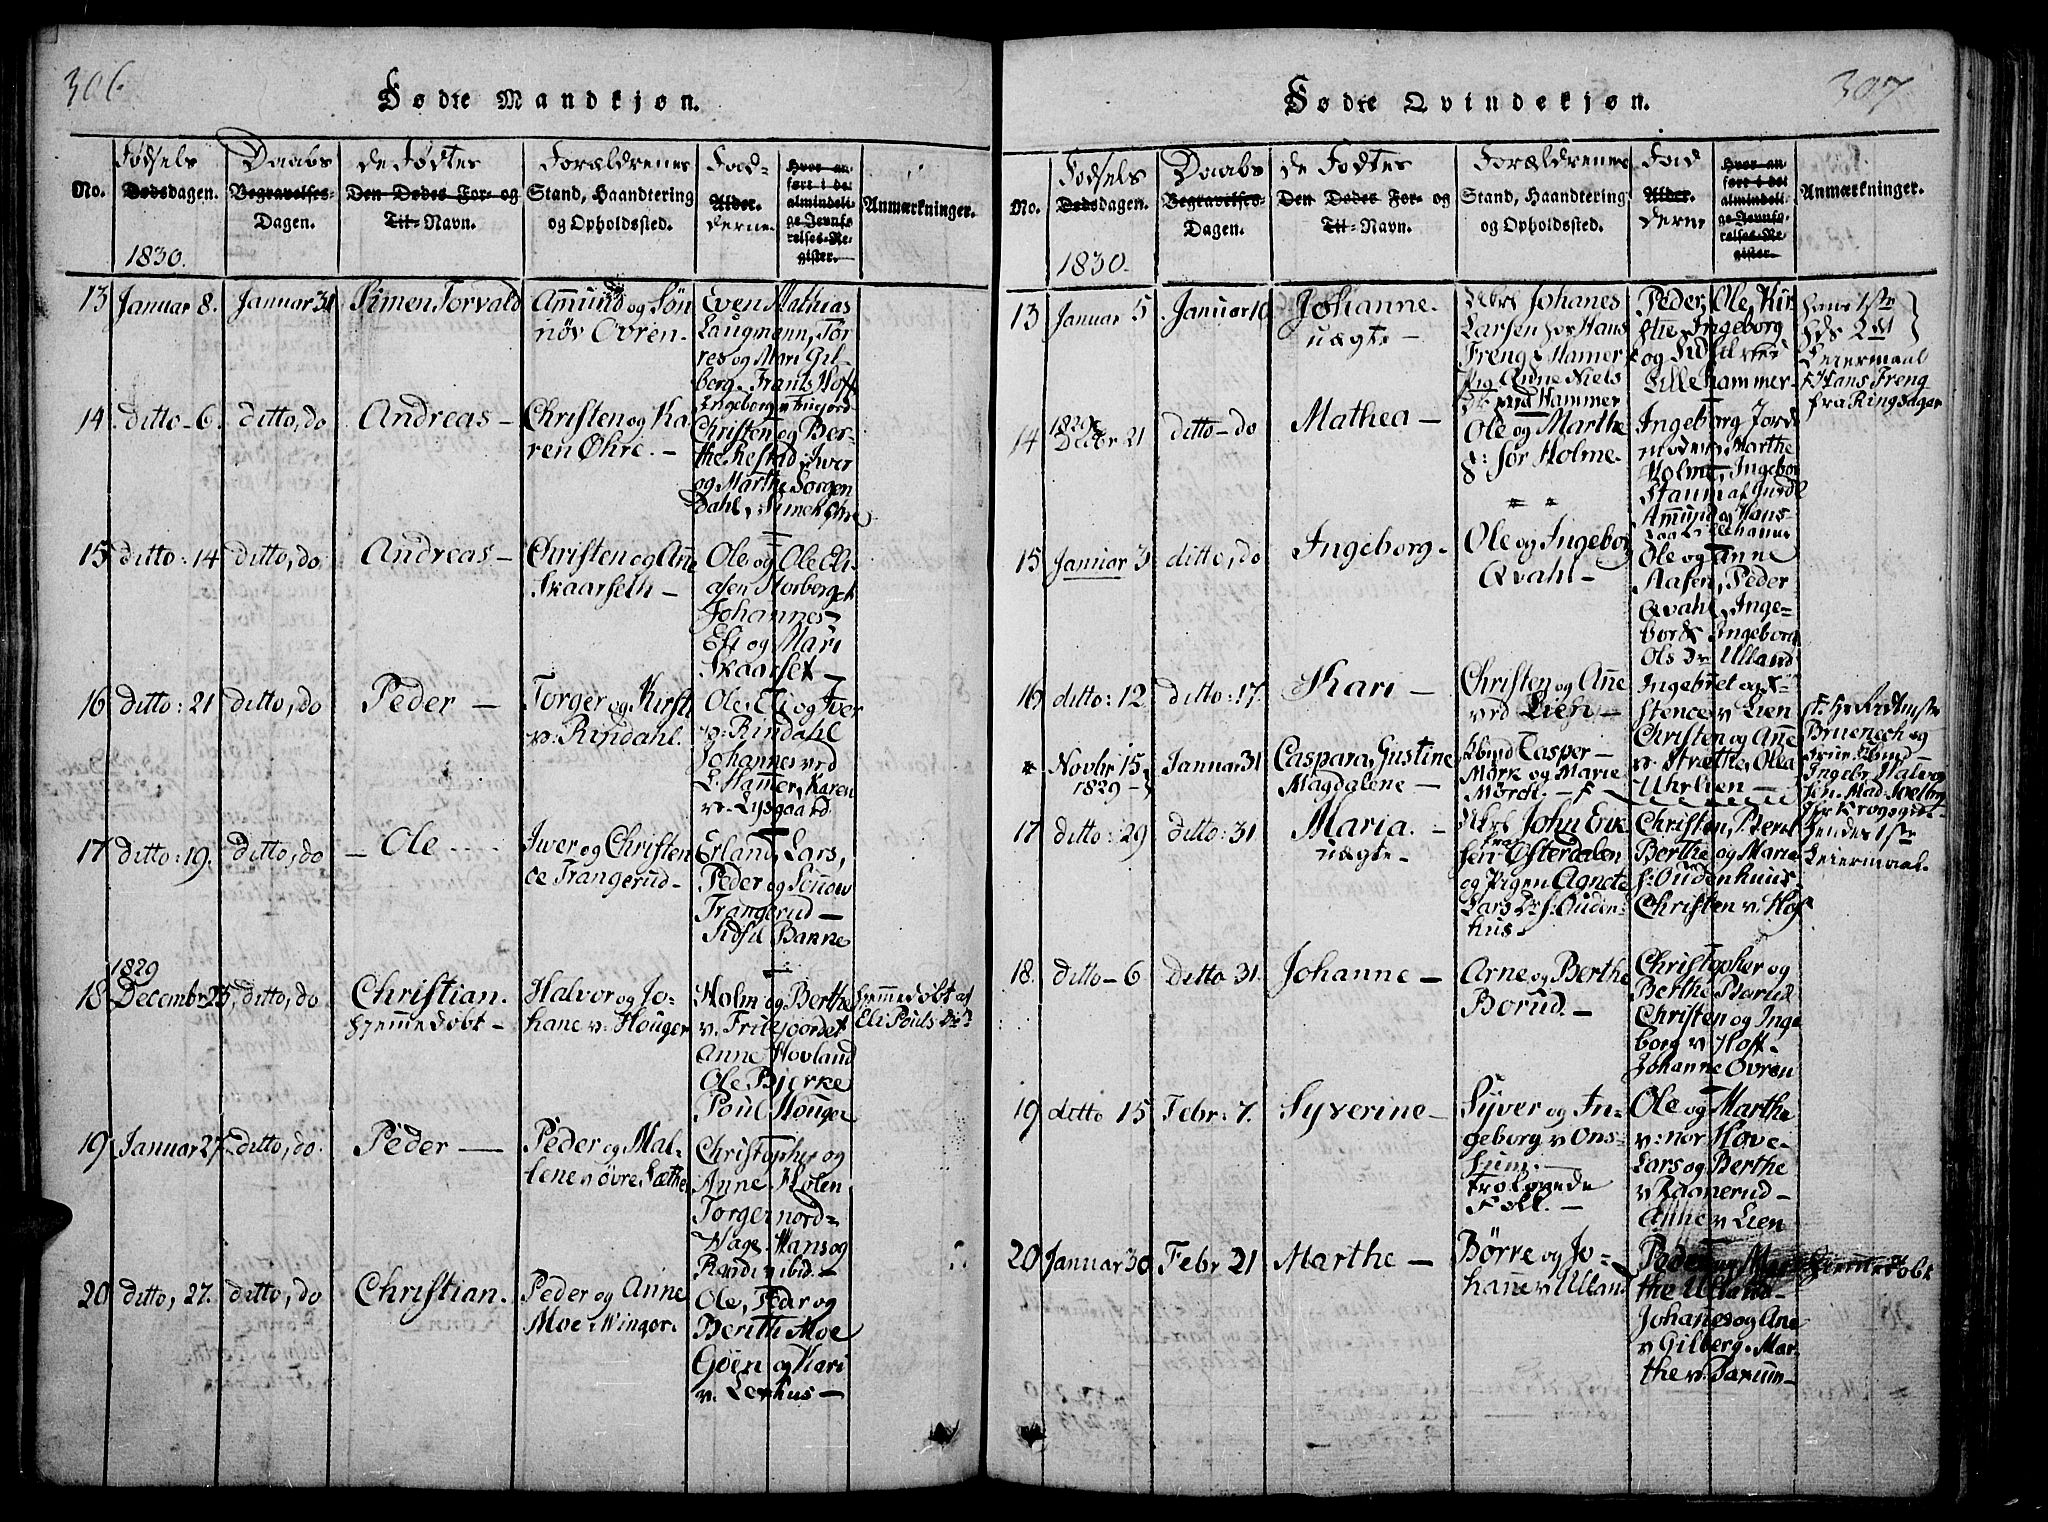 306
Fødte Mandkjøn.
No.
Fødsels
Dødsdagen.
1830.
Daabs
Begravelses-
Dagen.
De Fødtes
Den Dødes For- og
Til-Navn.
Forældrenes
Stand, Haandtering
og Opholdssted.
Fad-
Alder.
derne
Hvor an-
ført i det
almindeli-
ge Jevnfø-
relses-Re-
gister.
Anmærkninger.
13 Januar 8. Januar 31 Simen Torvald
Amund og Søn
nøv Övren.
Even Mathias
Laugmann, Tor
res og Mari Gil-
berg. Frants Hoff
Ingeborg v Friejord
14 ditto - 6. ditto, do Andreas -
Christen og Ka
ren Øhre. -
Christen og Ber-
the Restad, Iver
og Marthe Sorgen
Dahl,
15 ditto: 14 ditto, do Andreas -
Christen og Anne
Skaarseth -
Ole og Ole Eli-
asen Storberget
Johannes
Eft og Mari
Skaarset -
16 ditto: 21 ditto, do Peder -
Torger og Kirsti
v: Rindahl.
Ole, Eli og Iver
v: Rindahl
Johannes ved
L. Hammer, Karen
v. Lysgaard
17 ditto: 19. ditto, do - Ole
Iver og Christen
ce Trangerud -
Erland, Lars,
Peder og Sønnow
Trangerud -
Sidsil Banne
18 1829
Decembr 25, ditto, do
Christian.
hjemmedøbt -
Halvor og Jo-
hane v: Houger
Holm og Berthe
v. Friejordet
Anne Hovland
Ole Bjerke
Poul Houger
hjemmedøbt af
Eli Pouls Dr
19 Januar 27 ditto, do. Peder -
Peder og Mal-
lene v øvre Sæther
Christopher og
Anne Holen
Torger nord-
Hage. Hans og
Randi v ibid. -
20 ditto, 27. ditto, do Christian.
Peder og Anne
Moe
Ole, Peder og
Berith Moe
Goen og Kari
v. Lerhus -
307
Fødte Qvindekjøn.
No.
Fødsels
Dødsdagen.
1830.
Daabs
Begravelses-
Dagen.
De Fødtes
Den Dødes For- og
Til-Navn.
Forældrenes
Stand, Haandtering
og Opholdssted.
Fad
Alder.
derne
Hvor an-
ført i det
almindeli-
ge Jevnfø-
relses-Re-
gister.
Anmærkninger.
13 Januar 5 Januar 10 Johanne.
uægte -
Johanes
Larsen for Hans
Freng & Hamer
Pig Anne Niels
Dr ved Hammer
Peder, Ole, Kir
stie, Ingeborg
og Sidsil
Lillehammer -
hans 1ste
hds 2det
Leiermaal
Hans Freng
fra Ringsager
14 1829
Decbr 21 ditto - do Mathea -
Ole og Marthe
S: Sør Holme.
Ingeborg Jorde
moder, Marthe
Holme, Ingebor
Amund og Hans
15 Januar 3 ditto, do Ingeborg -
Ole og Ingeborg
Qvahl -
Ole og Anne
Aasen, Peder
Qvahl, Inge-
Ingeborg
Ols Dr Ulland
16 ditto: 12 ditto: 17. Kari -
Christen og Anne
ved Lien -
Ingebret og
stence v Lien
* Novbr 15
1829 - Januar 31
Caspara, Gustine
Magdalene -
Casper -
Mørk og Marie
Mørch. -
Christen og Anne
v. Stræthe, Olea
Uhrlien -
Bruenech og
17 ditto: 29 ditto: 31 Maria. -
uægte -
John Erik
sen fra Österdalen
og Pigen Agnete
Lars Dr S: Ouden-
hus.
Christen, Peter
Berthe og Marie
S: Oudenhuus.
Christen v. Hof
hendes 1ste
Leiermaal.
18. ditto - 6 ditto 31. Johanne -
Arne og Berthe
Borud. -
Christopher og
Berthe Borud
Christen og Inge
borg v Hoff -
Johanne Övren
19 ditto 15 Febr: 7. Syverine -
Syver og In-
geborg v Ons-
um. -
trolovede
Folk. -
Ole og Marthe
v: nor Hove -
Lars og Berthe
v Aanerud -
Anne v Lien
20 Januar 30 Febr 21 Marthe -
Børre og Jo-
hane v Ulland
Peder og Mar
the Ulland -
Johanes og Ane
v Gilberg. Mar-
the v: Barum -
hjemmedøbt